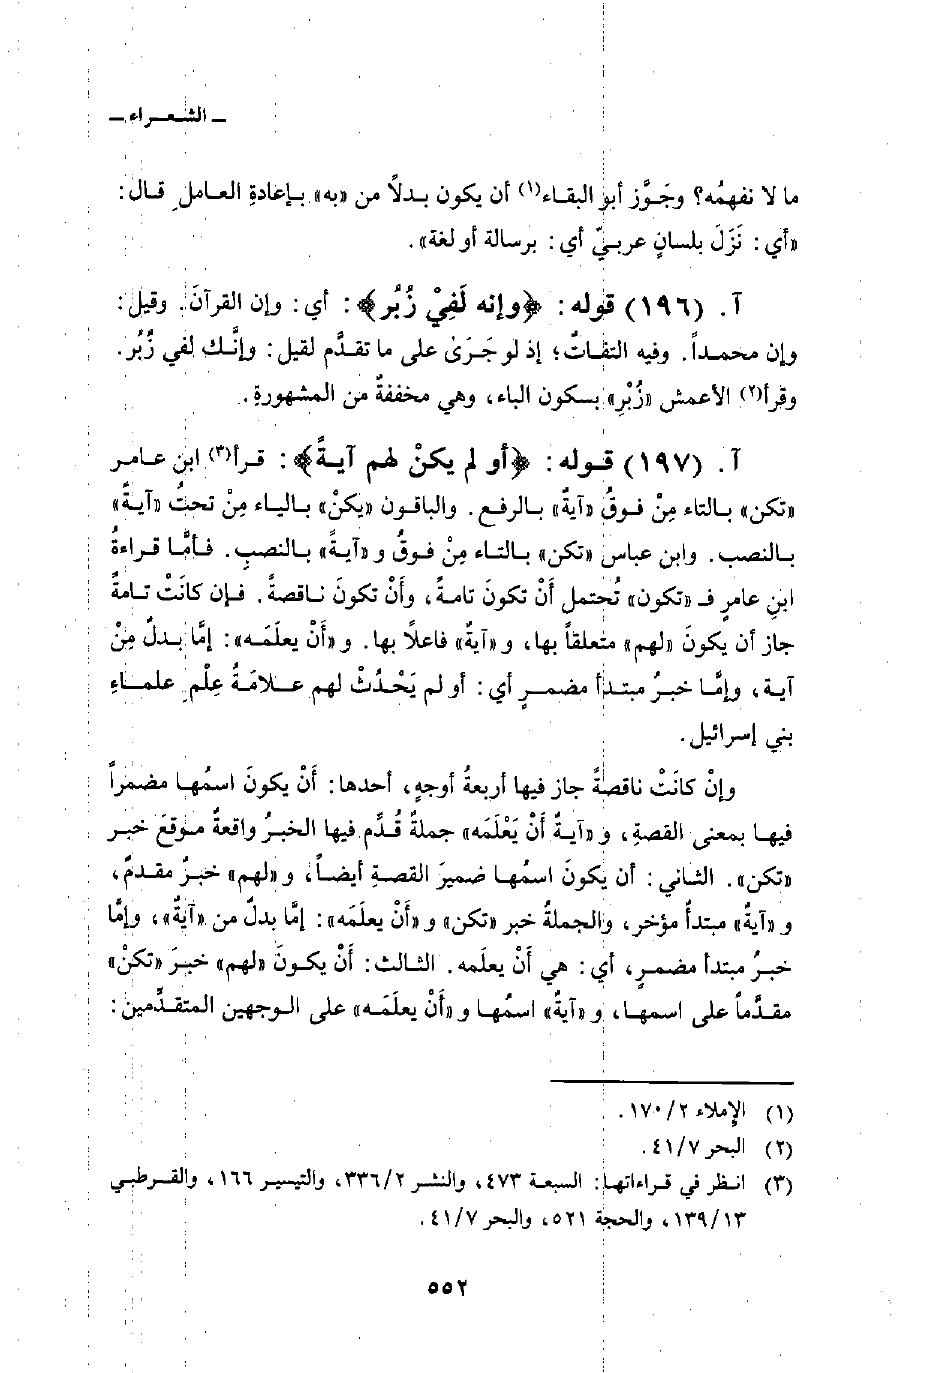 ـ الشعراء ـ
ما لا نفهمُه؟ وجَوَّز أبو البقاء(١) أن يكون بدلاً من «به» بإعادةِ العامل قال:
«أي: نَزَلَ بلسانٍ عربيّ أي: برسالة أو لغة».
آ. (١٩٦) قوله: ﴿وإنه لَفِيْ زُبُر﴾: أي: وإن القرآنَ. وقيل:
وإن محمداً. وفيه التفاتٌ؛ إذ لو جَرَىٰ على ما تقدَّم لقيل: وإنَّك لفي زُبُر.
وقرأ(٢) الأعمش «زُبْرِ» بسكون الباء، وهي مخففةٌ من المشهورةِ.
آ. (١٩٧) قوله: ﴿أو لم يكنْ لهم آيةً﴾: قرأ(٣) ابن عامر
«تكن» بالتاء مِنْ فوقُ «آيةٌ» بالرفع. والباقون «يكنْ» بالياء مِنْ تحتُ «آيةً»
بالنصب. وابن عباس «تكن» بالتاء مِنْ فوقُ و «آيةً» بالنصبِ. فأمَّا قراءةُ
ابنِ عامرٍ فـ «تكون» تُحتمل أَنْ تكونَ تامةً، وأَنْ تكونَ ناقصةً. فإن كانَتْ تامةً
جاز أن يكونَ «لهم» متعلقاً بها، و «آيةٌ» فاعلاً بها. و «أَنْ يعلَمَه»: إمَّا بدلٌ مِنْ
آية، وإمَّا خبرُ مبتدأ مضمرٍ أي: أو لم يَحْدُثْ لهم علامَةُ عِلْمِ علماءِ
بني إسرائيل.
وإنْ كانَتْ ناقصةً جاز فيها أربعةُ أوجهٍ، أحدها: أَنْ يكونَ اسمُها مضمراً
فيها بمعنى القصةِ، و «آيةٌ أَنْ يَعْلَمَه» جملةٌ قُدِّم فيها الخبرُ واقعةٌ موقعَ خبر
«تكن». الثاني: أن يكونَ اسمُها ضميرَ القصةِ أيضاً، و «لهم» خبرٌ مقدمٌ،
و «آيةٌ» مبتدأٌ مؤخر، والجملةُ خبر «تكن» و «أَنْ يعلَمَه»: إمَّا بدلٌ من «آيةٌ»، وإمَّا
خبرُ مبتدأ مضمرٍ، أي: هي أَنْ يعلَمه. الثالث: أَنْ يكونَ «لهم» خبرَ «تكنْ»
مقدَّماً على اسمها، و «آيةٌ» اسمُها و «أَنْ يعلَمَه» على الوجهين المتقدِّمين:
(١) الإملاء ١٧٠/٢.
(٢) البحر ٤١/٧.
(٣) انظر في قراءاتها: السبعة ٤٧٣، والنشر ٣٣٦/٢، والتيسير ١٦٦، والقرطبي
١٣٩/١٣، والحجة ٥٢١، والبحر ٤١/٧.
٥٥٢